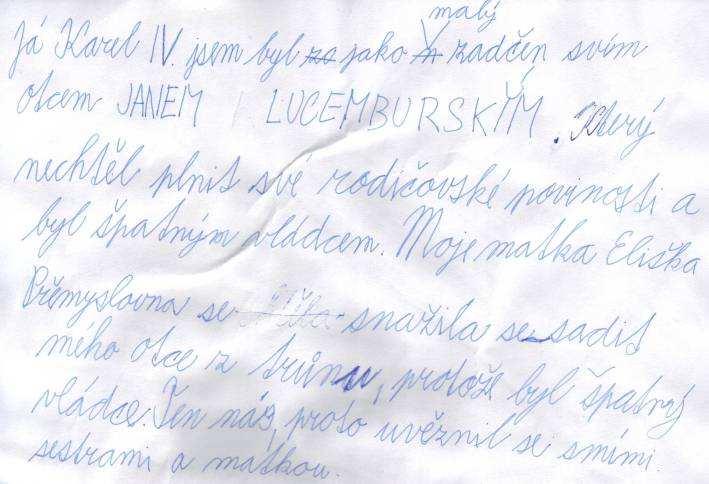 malý
Já Karel IV. jsem byl za jako zadčen svím
otcem JANEM LUCEMBURSKÍM. Který
nechtěl plnit své rodičovské povinosti a
byl špatným vládcem. Moje matka Eliška
Přěmyslovna se snažila se sadit
mého otce z trůnu, protože byl špatný
vládce. Ten náz, proto uvěznil se smími
sestrami a matkou.